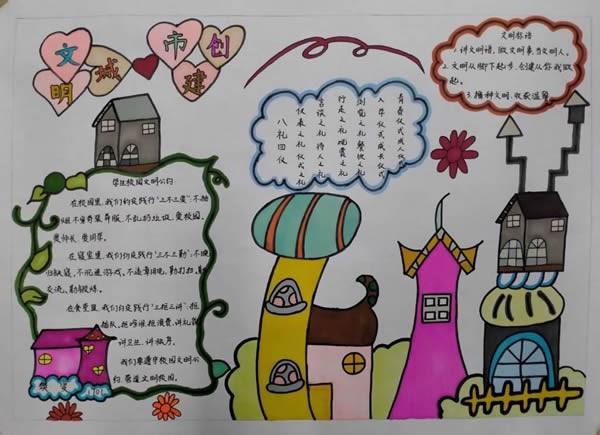 创建
文明城市
文明标语
1.讲文明语,做文明事,当文明人。
2.文明从脚下起步,创建从你我做
起。
3.播种文明,收获温馨
八礼四仪
仪表之礼 仪式之礼
言谈之礼 待人之礼
行走之礼 观赏之礼
游览之礼 餐饮之礼
入学仪式 成长仪式
青春仪式 成人仪式
学生校园文明公约
在校园里,我们约定践行"三不三爱":不
不乱扔垃圾,爱校园,
爱师长,爱同学。
在寝室里,我们约定践行"三不三勤":不晚
归就寝,不沉迷游戏,不违章用电,勤打扫,勤
交流,勤锻炼。
在食堂里,我们约定践行"三拒三讲":拒
插队,拒喧哗,拒浪费,讲礼貌
讲卫生,讲秩序。
我们要遵守校园文明公
约,营造文明校园。